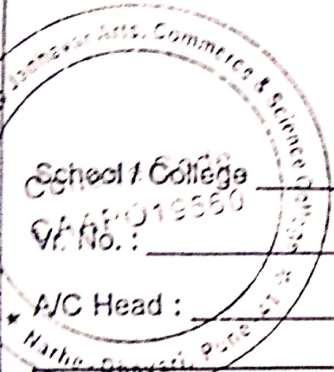 Jadhawar Arts, Commerce & Science College
School / College
CAAPO19560
Vr. No. :
A/C Head :
★ Narhe-Dhayari, Pune-41 ★